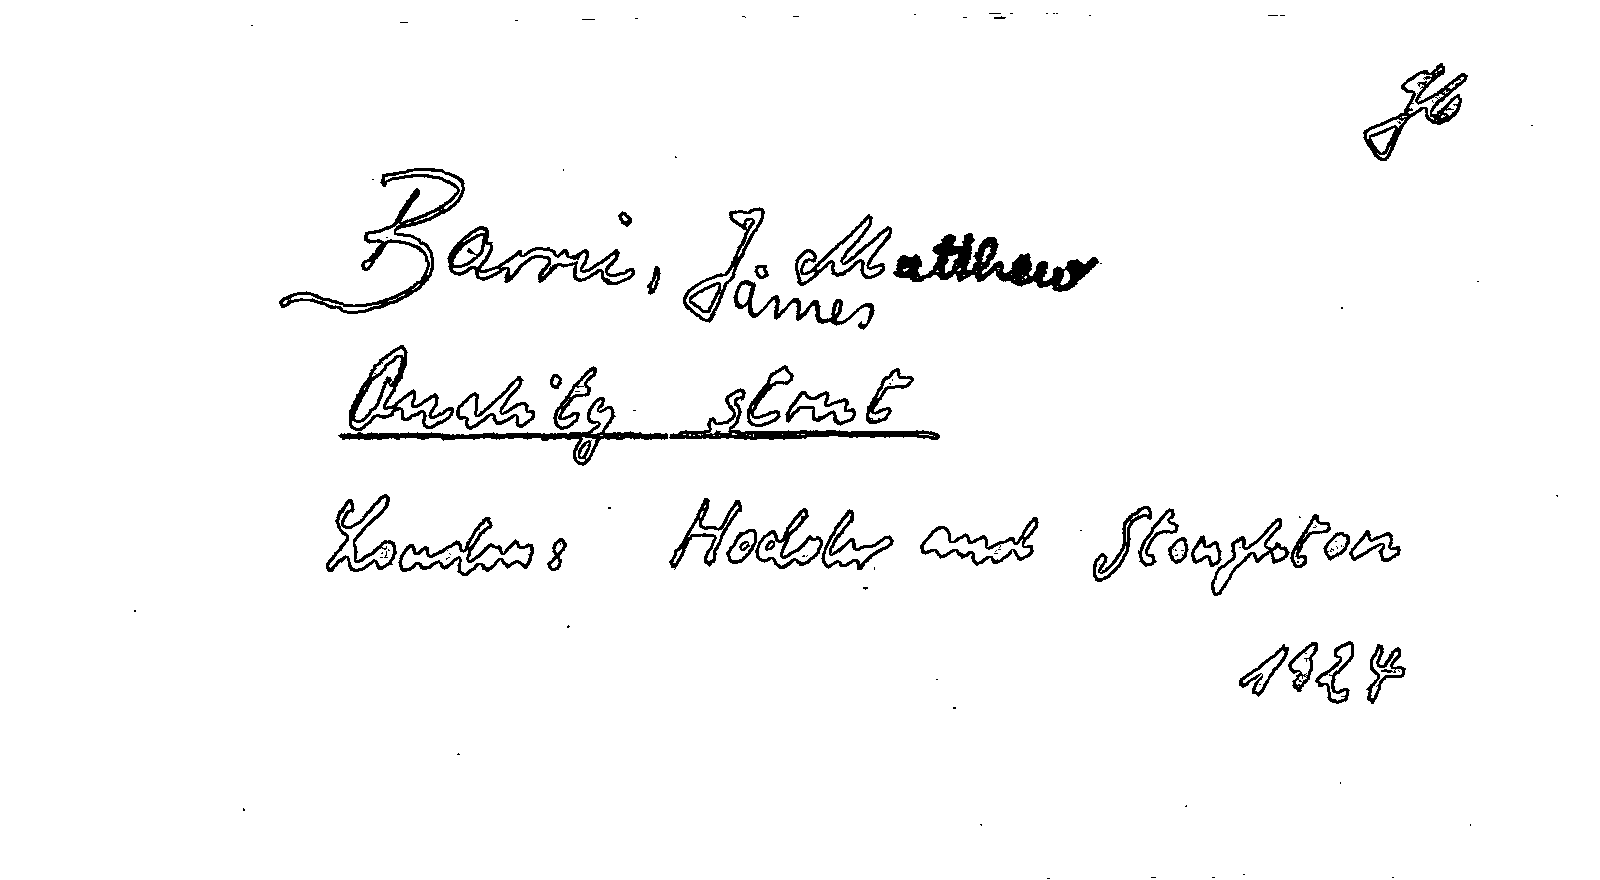 Barrie, J. Matthew
James
Quality street
London: Hodder and Stoughton
1924